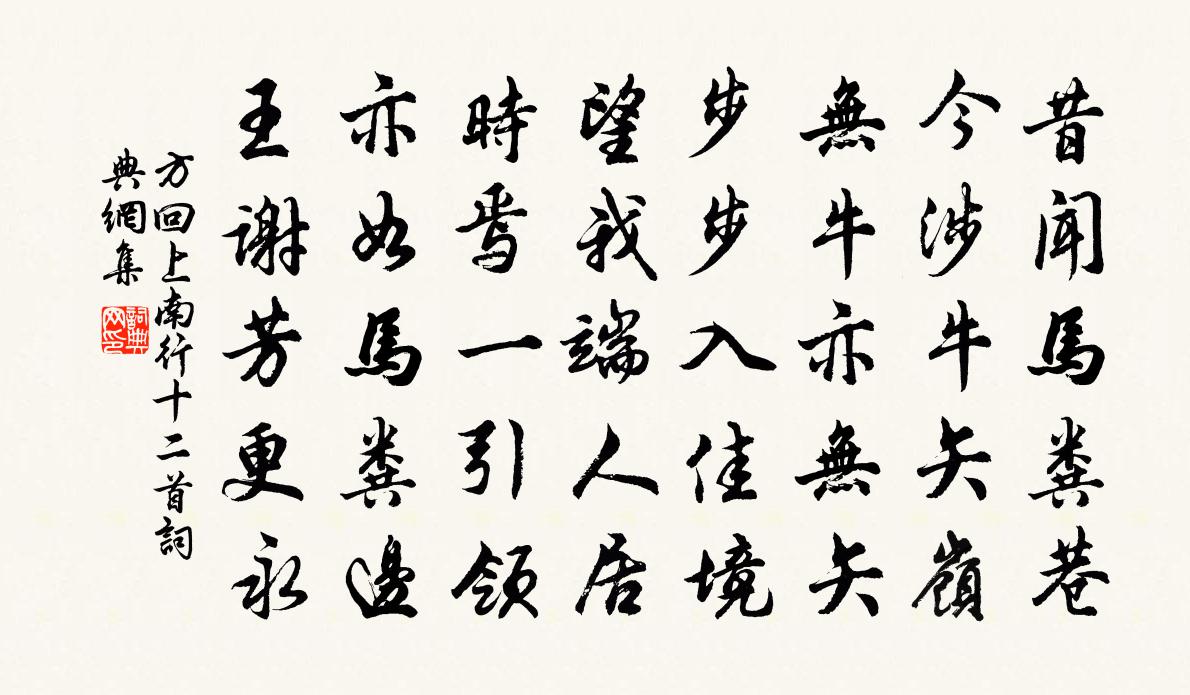 昔聞馬糞巷
今涉牛矢嶺
無牛亦無矢
步步入佳境
望我端人居
時焉一引領
亦如馬糞邊
王謝芳更永
方回上南行十二首詞
典網集
詞典
网印